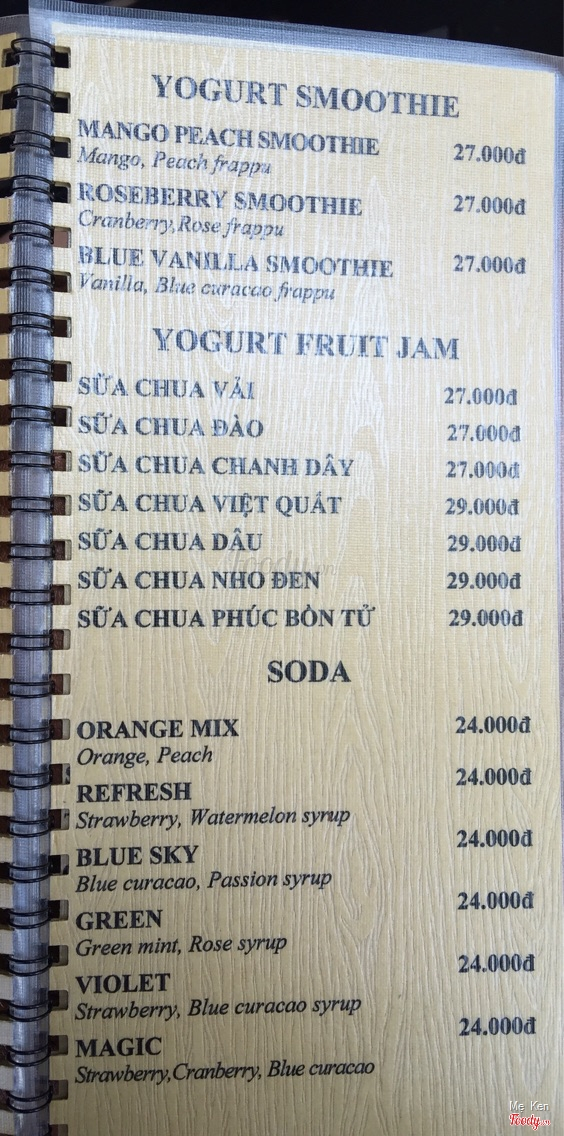 YOGURT SMOOTHIE
MANGO PEACH SMOOTHIE 27.000đ
Mango, Peach frappu
ROSEBERRY SMOOTHIE 27.000đ
Cranberry,Rose frappu
BLUE VANILLA SMOOTHIE 27.000đ
Vanilla, Blue curacao frappu
YOGURT FRUIT JAM
SỮA CHUA VẢI 27.000đ
SỮA CHUA ĐÀO 27.000đ
SỮA CHUA CHANH DÂY 27.000đ
SỮA CHUA VIỆT QUẤT 29.000đ
SỮA CHUA DÂU 29.000đ
SỮA CHUA NHO ĐEN 29.000đ
SỮA CHUA PHÚC BỒN TỬ 29.000đ
SODA
ORANGE MIX 24.000đ
Orange, Peach
REFRESH 24.000đ
Strawberry, Watermelon syrup
BLUE SKY 24.000đ
Blue curacao, Passion syrup
GREEN 24.000đ
Green mint, Rose syrup
VIOLET 24.000đ
Strawberry, Blue curacao syrup
MAGIC 24.000đ
Strawberry,Cranberry, Blue curacao
Me Ken
Foody.vn